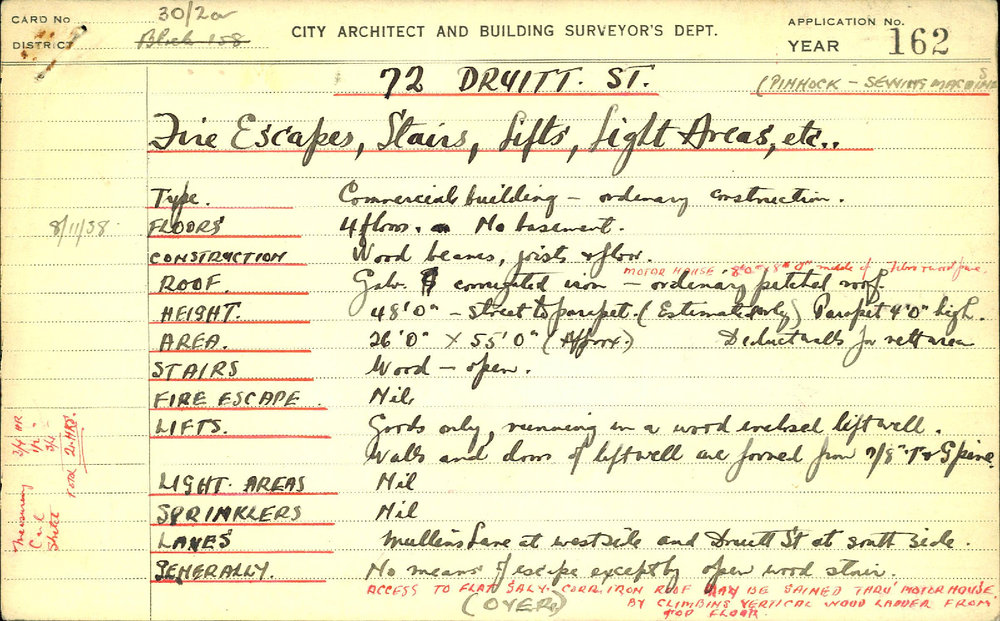 CARD No 30/2a
DISTRICT Block 158
CITY ARCHITECT AND BUILDING SURVEYOR'S DEPT.
APPLICATION No. 162
YEAR
72 DRUITT. ST. (PINNOCK - SEWING MACHINES
Fire Escapes, Stairs, Lifts, Light Areas, etc..
8/11/38.
Type. Commercial building - ordinary construction.
FLOORS 4 floors. No basement.
CONSTRUCTION Wood beams, joists & floor.
MOTOR HOUSE 8'0" x 8'0" made of
ROOF. Galv. corrugated iron - ordinary pitched roof.
HEIGHT. 48'0" - Street to parapet. (Estimated only) Parapet 4'0" high.
AREA. 26'0" x 55'0" (Approx.) Deduct walls for nett area
STAIRS Wood - open.
FIRE ESCAPE. Nil
LIFTS. Goods only, running in a wood enclosed liftwell.
Walls and doors of liftwell are formed from 7/8" T & G pine.
LIGHT AREAS Nil
SPRINKLERS Nil
LANES Mullins Lane at west side and Druitt St at south side.
GENERALLY. No means of escape except by open wood stair.
ACCESS TO FLAT GALV. CORR. IRON ROOF MAY BE GAINED THRU' MOTOR HOUSE.
BY CLIMBING VERTICAL WOOD LADDER FROM
TOP FLOOR.
(OVER)
Measuring 3/4 HR
Card 1/2 -
Sketch 3/4
TOTAL 2-HRS.